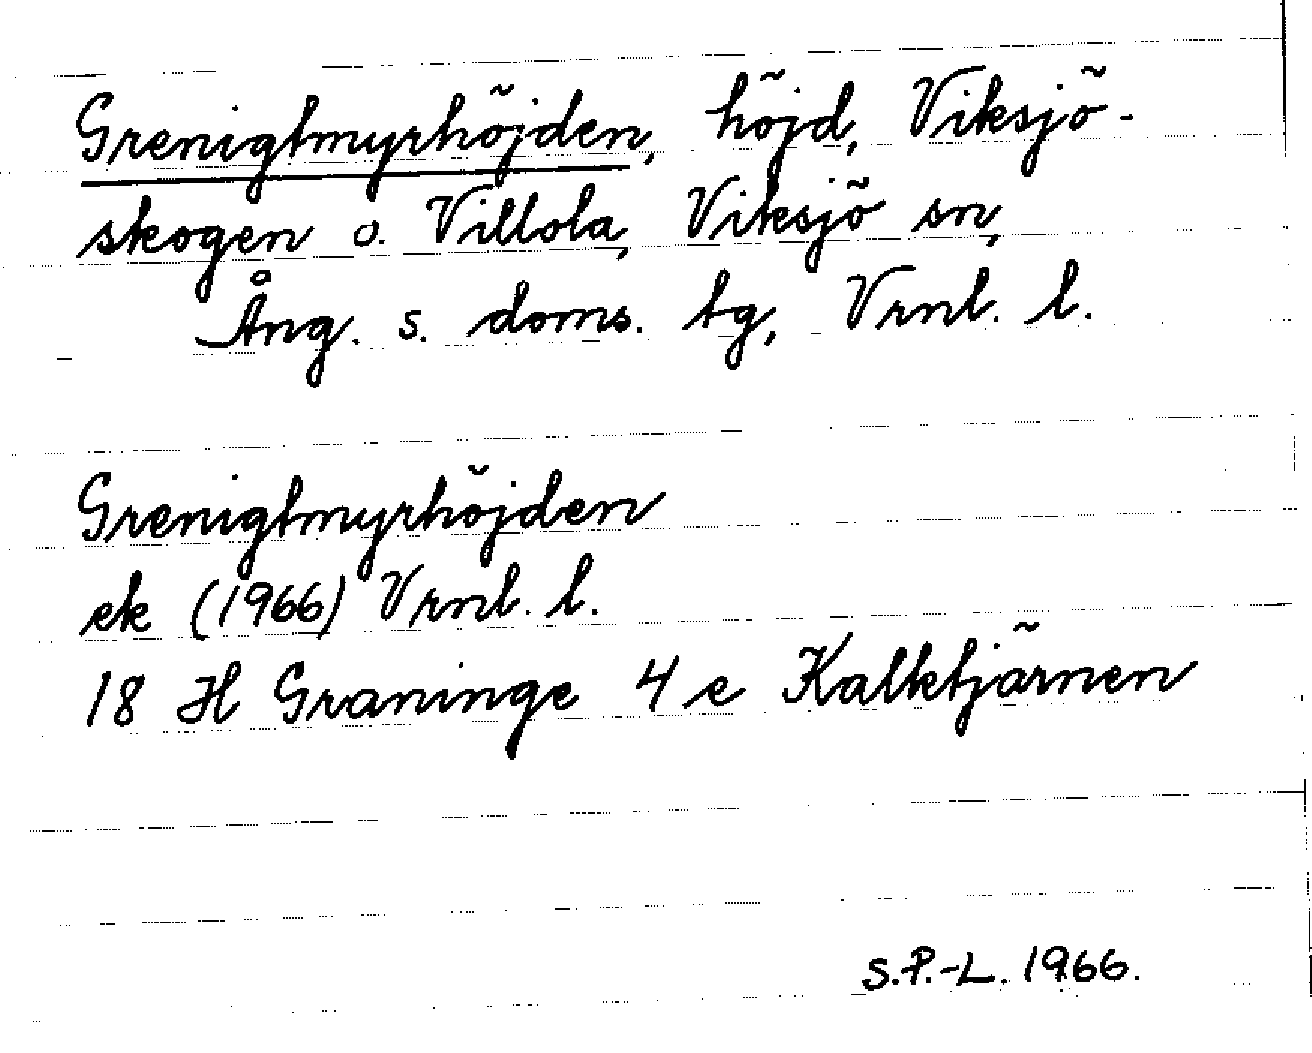 Grenigtmyrhöjden, höjd, Viksjö-
skogen o. Villola, Viksjö sn,
Ång. s. doms. tg, Vrnl. l.
Grenigtmyrhöjden
ek (1966) Vrnl. l.
18 H Graninge 4 e Kalktjärnen
S.P.-L. 1966.